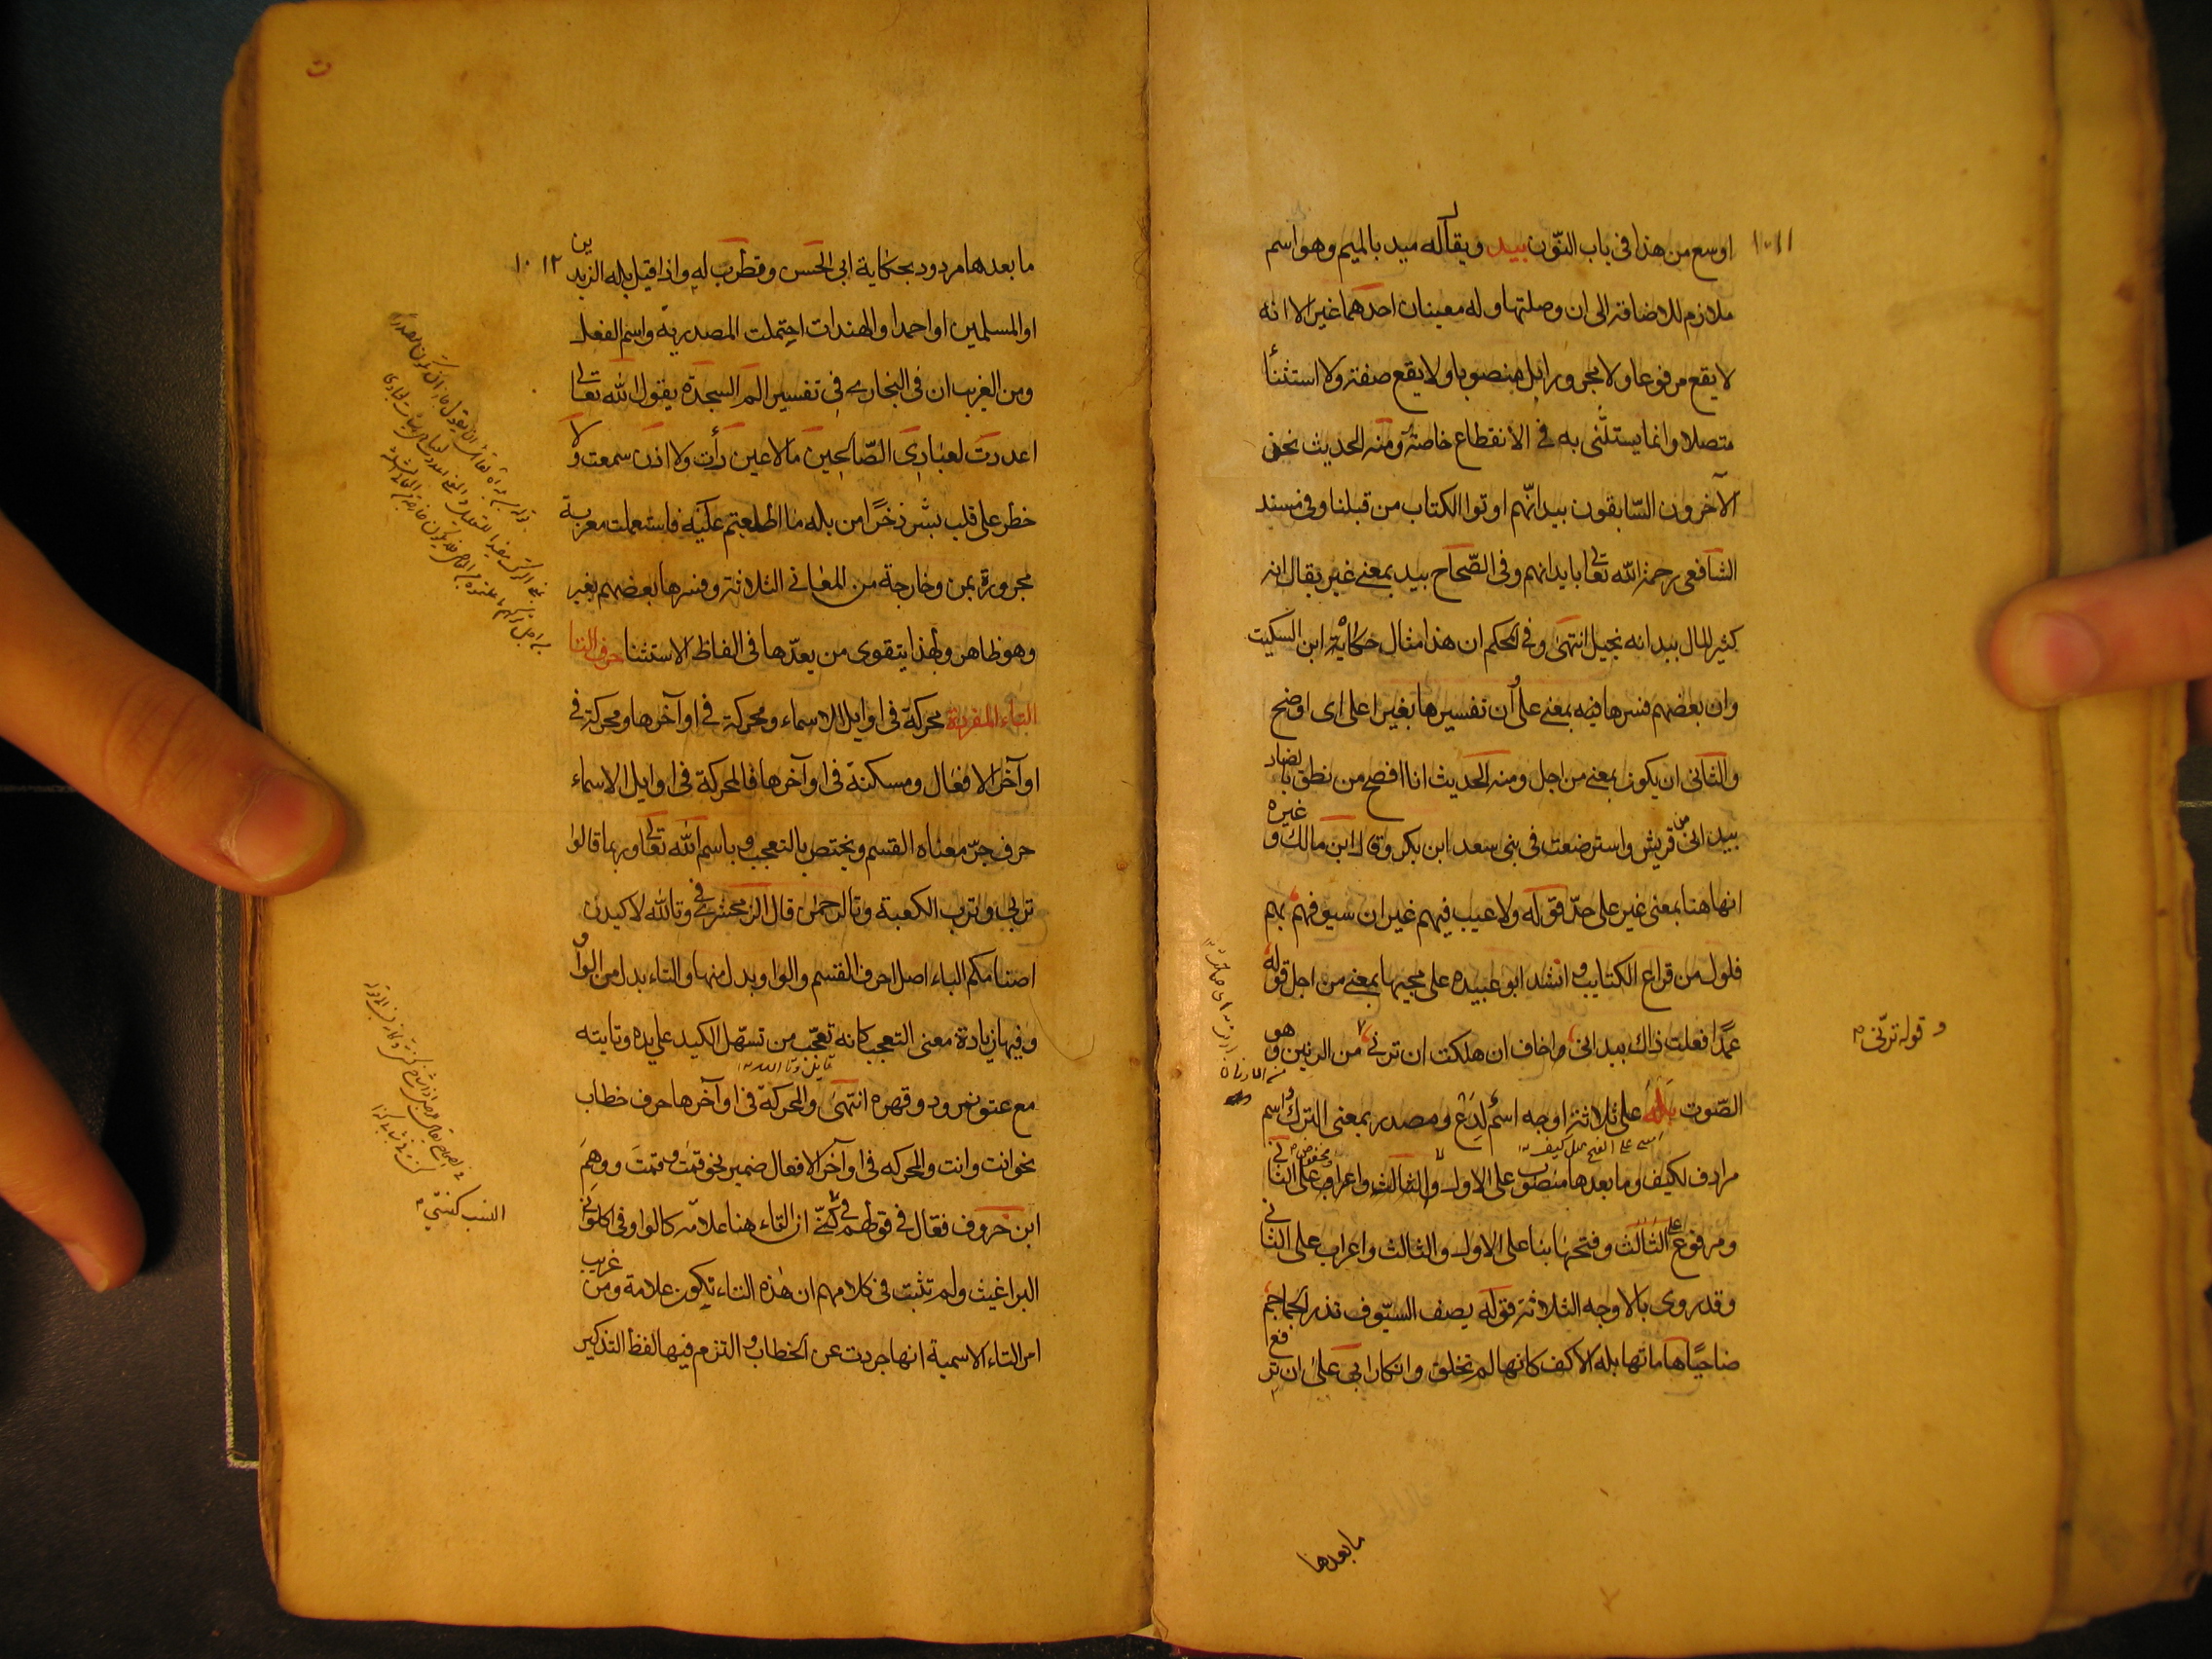 اوسع من هذا فى باب النّون بيد ويقال له ميد بالميم وهو اسم
ملازم للاضافة الى ان وصلتها وله معينان احدهما غير الا انه
لا يقع مرفوعا ولا مجرورا بل منصوبا ولا يقع صفة ولا استثنأ
متصلا وانما يستثنى به فى الانقطاع خاصة ومنه الحديث نحن
الآخرون السّابقون بيد انّهم اوتوا الكتاب من قبلنا وفى مسند
الشافعى رحمة الله تعالى بايد انهم وفى الصّحاح بيد بمعنے غير يقال انه
كثير المال بيد انه بخيل انتهى وفى المحكم ان هذا مثال حكاية ابن السكيت
وان بعضهم فسرها فيه بمعنے على وان تفسيرها بغير اعلى اى اوضح
والثانى ان يكون بمعنے من اجل ومنه الحديث انا افصح من نطق بالضاد
بيد انى من قريش واسترضعت فى بنى سعد ابن بكر وقال ابن مالك وغيره
انها هنا بمعنى غير على حدّ قوله ولا عيب فيهم غير ان سيوفهم بهم
فلول من قراع الكتايب وانشد ابو عبيده على مجيئها بمعنے من اجل قوله
عمدًا فعلت ذاك بيد انى اخاف ان هلكت ان ترنے من الرنين وهو
الصّوت بله على ثلاثة اوجه اسم لدع ومصدر بمعنى الترك واسم
مرادف لكيف وما بعدها منصوب على الاول ومخفوض على الثانے
ومرفوع على الثالث وفتحها بنا على الاول والثالث واعراب على الثانے
وقد روى بالاوجه الثلاثة قوله يصف السيّوف تذر الجماجم
ضاحيًا هاماتها بله الاكف كانها لم تخلق وانكار ابى على ان ترفع
ما بعدها
١٠١١
و قوله ترنّى
ت
١٠١٢
ما بعدها مردود بحكاية ابى الحسن وقطرب له واذا قيل بله الزيدين
او المسلمين او احمد او الهندات احتملت المصدرية واسم الفعل
ومن الغريب ان فى البخارے فى تفسير الم السجدة يقول الله تعالى
اعددت لعبادى الصّالحين ما لا عين رأت ولا اذن سمعت ولا
خطر على قلب بشر ذخرًا من بله ما اطلعتم عليه فاستعملت معربة
مجرورة بمن وخارجة من المعانے الثلاثة وفسرها بعضهم بغير
وهو ظاهر وبهذا يتقوى من يعدّها فى الفاظ الاستثنا حرف التا
التاء المفردة محركة فى اوايل الاسماء ومحركة فى اوآخرها ومحركة فى
اوآخر الافعال ومسكنة فى اوآخرها فالمحركة فى اوايل الاسماء
حرف جرّ معناه القسم ويختص بالتعجب وباسم الله تعالى وربما قالوا
تربى وترب الكعبة وتالرحمن قال الزمخشرے فى وتالله لاكيدن
اصنامكم الباء اصل احرف القسم والواو بدل منها والتاء بدل من الواو
وفيها زيادة معنى التعجب كانه تعجّب من تسهّل الكيد على يده وتاتيه
مع عتو نمرود وقهره انتهى والمحركة فى اوآخرها حرف خطاب
نحو انت وانت والمحركه فى اوآخر الافعال ضمير نحو قمت وقمت ووهم
ابن خروف فقال فى قولهم فى النسب كنتّے ان التاء هنا علامة كالواو فى اكلونے
البراغيث ولم تثبت فى كلامهم ان هذه التاء تكون علامة ومن غريب
امر التاء الاسمية انها جردت عن الخطاب والتزم فيها لفظ التذكير
النسب كنتىّ